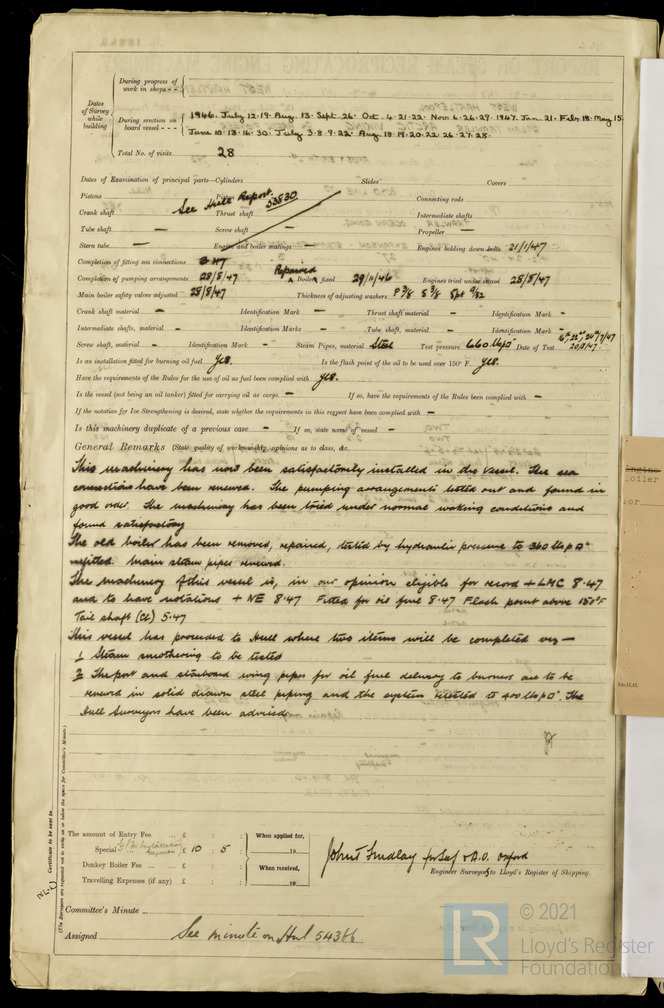 Dates of Survey while building
During progress of work in shops - -
During erection on board vessel - - -
1946. July 12. 19. Aug. 13. Sept. 26. Oct. 4. 21. 22. Nov. 6. 26. 29. 1947. Jan. 21. Feb. 18. May 15.
June 10. 13. 16. 30. July 3. 8. 9. 22. Aug. 18. 19. 20. 22. 26. 27. 28.
Total No. of visits 28
Dates of Examination of principal parts—Cylinders Slides Covers
Pistons See Hull Report 53830 Connecting rods
Crank shaft Thrust shaft Intermediate shafts
Tube shaft — Screw shaft — Propeller —
Stern tube — Engine and boiler seatings — Engines holding down bolts 21/1/47
Completion of fitting sea connections 47
Completion of pumping arrangements 28/8/47 Repaired Boilers fixed 29/11/46 Engines tried under steam 28/8/47
Main boiler safety valves adjusted 28/8/47 Thickness of adjusting washers P 3/8 S 3/8 Spt 9/32
Crank shaft material - Identification Mark - Thrust shaft material - Identification Mark -
Intermediate shafts, material - Identification Marks - Tube shaft, material - Identification Mark -
Screw shaft, material - Identification Mark - Steam Pipes, material Steel Test pressure 660 lbs/□" Date of Test 16th, 22nd, 24th/7/47 20/8/47
Is an installation fitted for burning oil fuel Yes. Is the flash point of the oil to be used over 150° F. Yes.
Have the requirements of the Rules for the use of oil as fuel been complied with Yes.
Is the vessel (not being an oil tanker) fitted for carrying oil as cargo - If so, have the requirements of the Rules been complied with -
If the notation for Ice Strengthening is desired, state whether the requirements in this respect have been complied with -
Is this machinery duplicate of a previous case - If so, state name of vessel -
General Remarks (State quality of workmanship, opinions as to class, &c.
This machinery has now been satisfactorily installed in the vessel. The sea
connections have been renewed. The pumping arrangements tested out and found in
good order. The machinery has been tried under normal working conditions and
found satisfactory
The old boiler has been removed, repaired, tested by hydraulic pressure to 360 lbs p □"
refitted. Main steam pipes renewed.
The machinery of this vessel is, in our opinion eligible for record + LMC 8.47
and to have notations + NE 8.47 Fitted for oil fuel 8.47 Flash point above 150°F
Tail shaft (CL) 5.47
This vessel has proceeded to Hull where two items will be completed viz —
1 Steam smothering to be tested
2 The port and starboard wing pipes for oil fuel delivery to burners are to be
renewed in solid drawn steel piping and the system retested to 400 lbs p □". The
Hull Surveyors have been advised
Certificate to be sent to
(The Surveyors are requested not to write on or below the space for Committee's Minute.)
The amount of Entry Fee ... £ : :
Special £ 10 : 5 :
Donkey Boiler Fee ... ... £ : :
Travelling Expenses (if any) £ : :
When applied for,
19
When received,
19
John T Findlay for Self & A.O. Oxford
Engineer Surveyors to Lloyd's Register of Shipping.
Committee's Minute
Assigned See minute on Hul 54386
Engine
Boiler
or
© 2021
LR
Lloyd's Register
Foundation